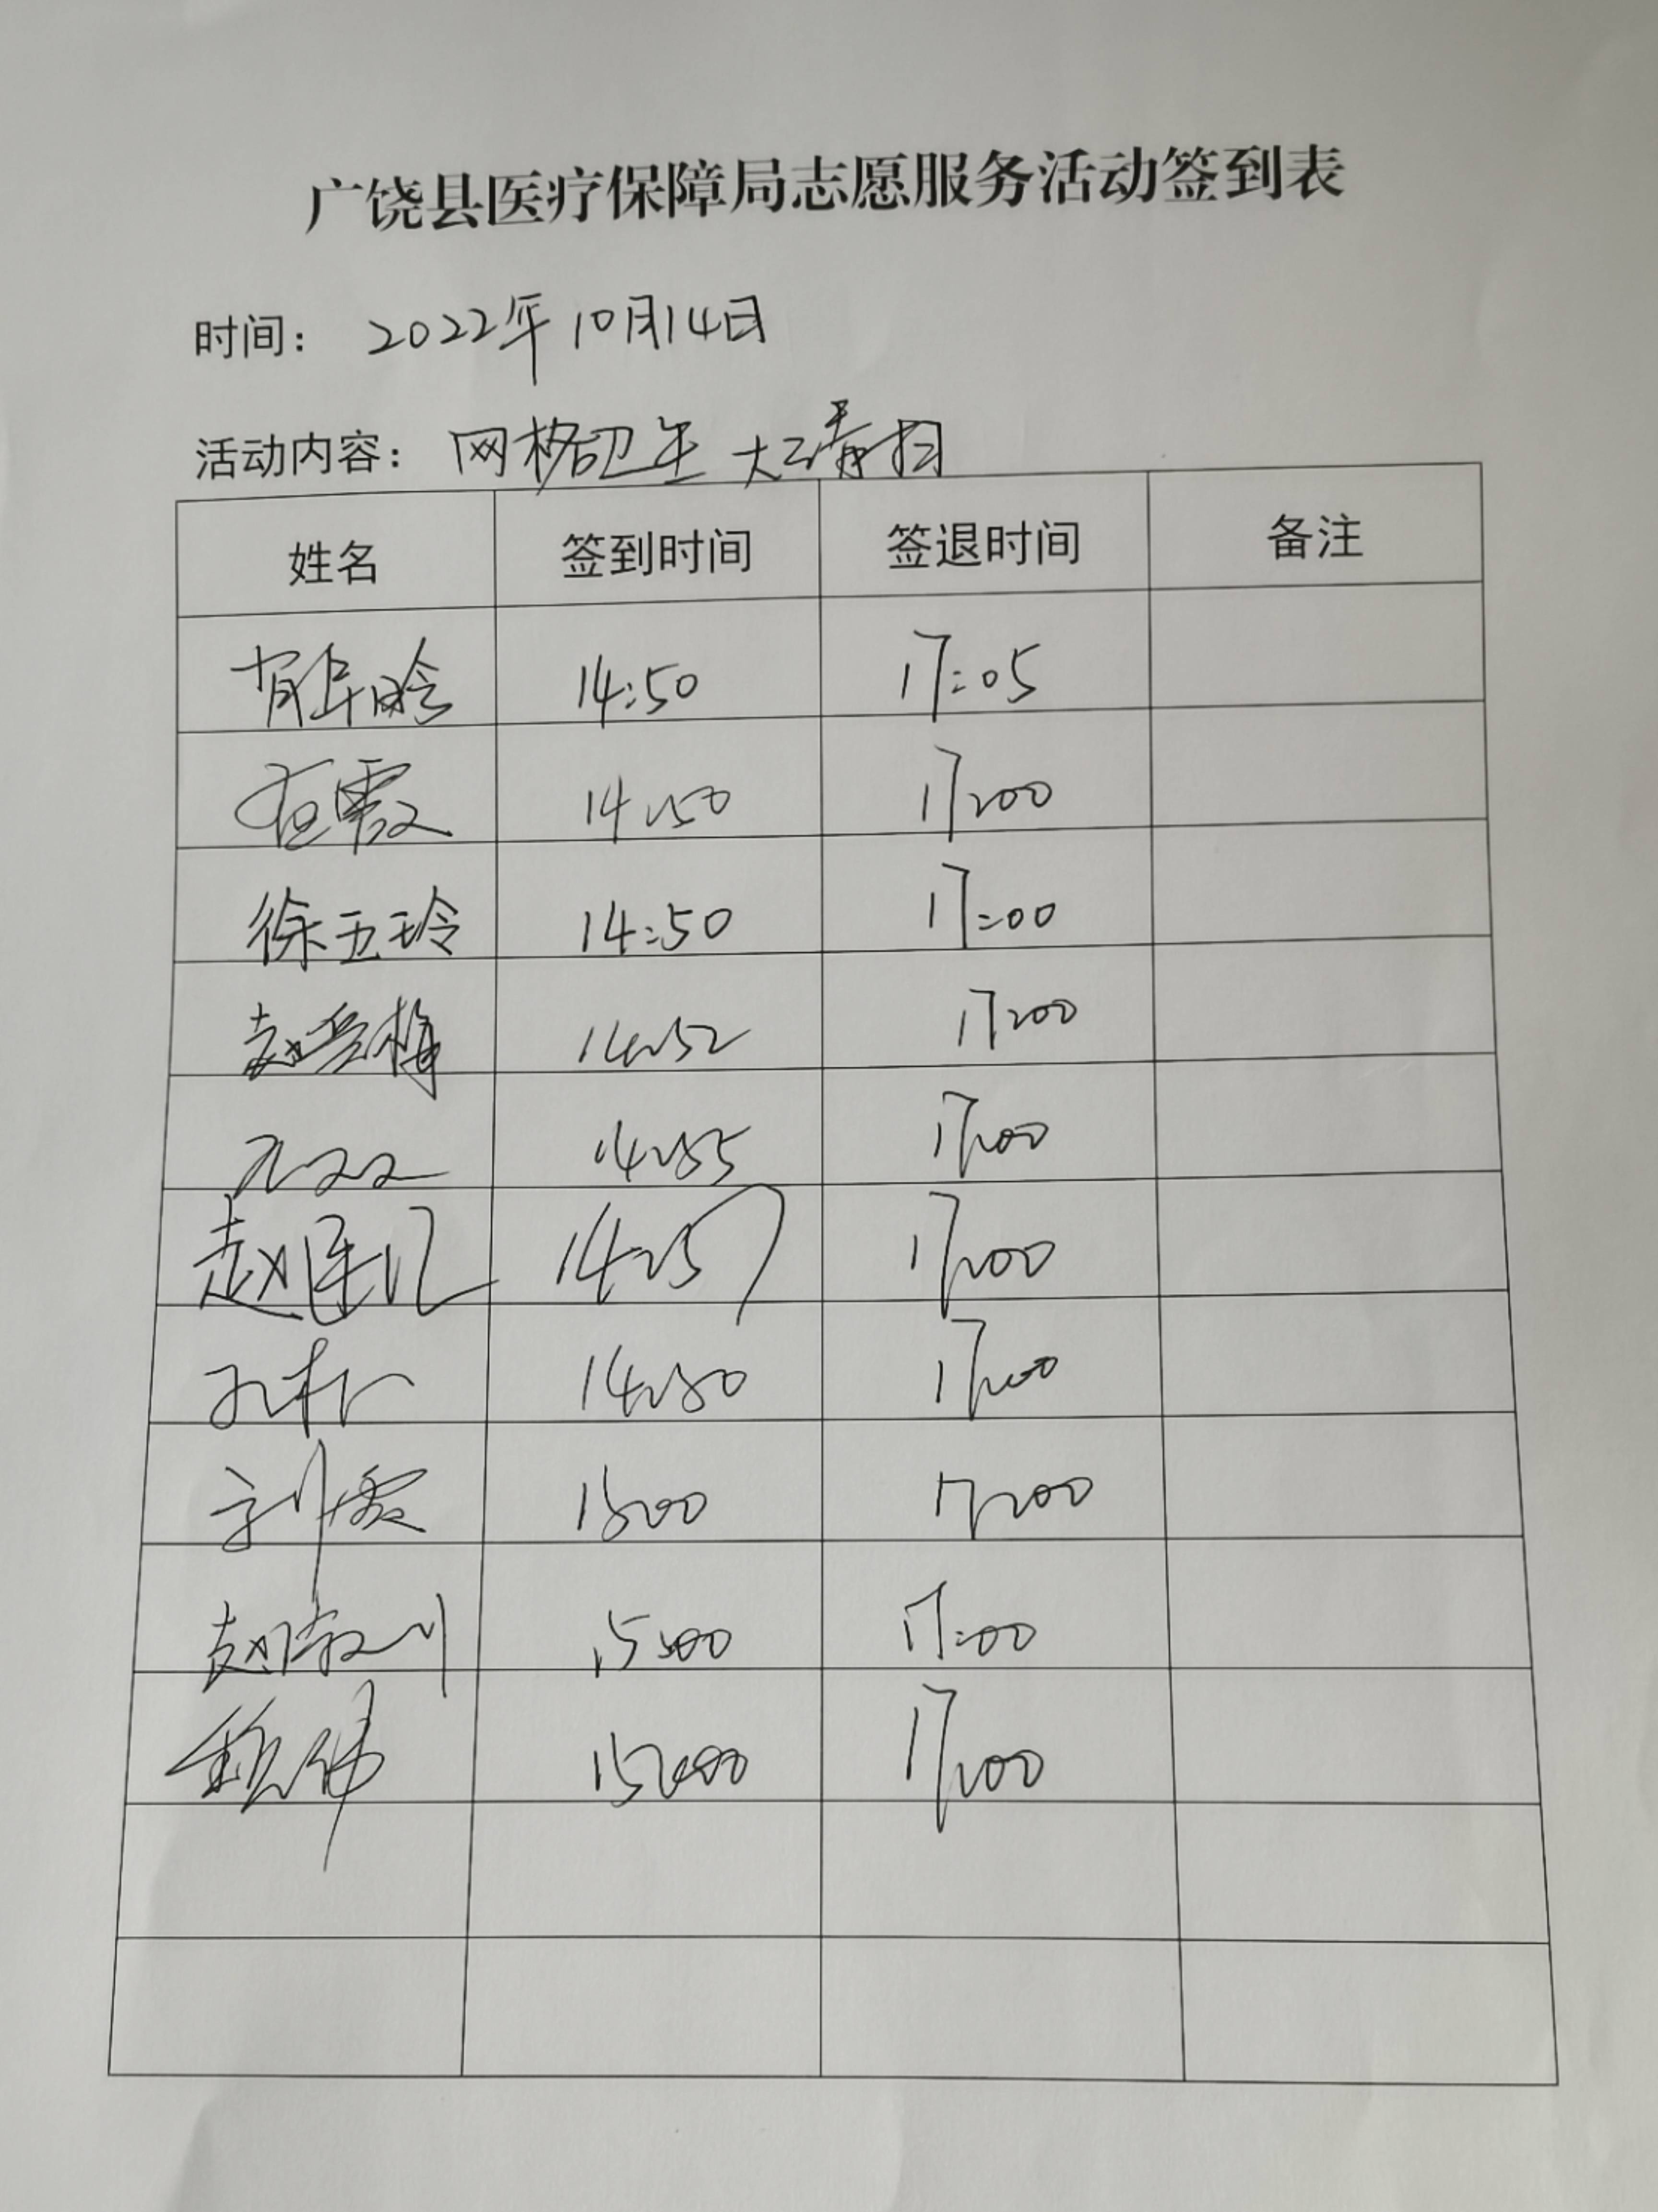 广饶县医疗保障局志愿服务活动签到表
时间： 2022年10月14日
活动内容： 网格卫生大清扫
姓名 签到时间 签退时间 备注
14:50 17:05
霞 14:50 17:00
徐玉玲 14:50 17:00
赵 梅 14:52 17:00
14:55 17:00
赵 14:57 17:00
14:50 17:00
刘霞 15:00 17:00
赵 川 15:00 17:00
伟 15:00 17:00